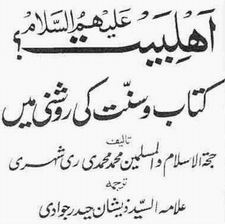 اھلبیت علیہم السلام ؟
کتاب و سنّت کی روشنی میں
تالیف
حجۃ الاسلام والمسلمین محمد محمدی ری شہری
ترجمہ
علامہ السیّد ذیشان حیدر جوادی